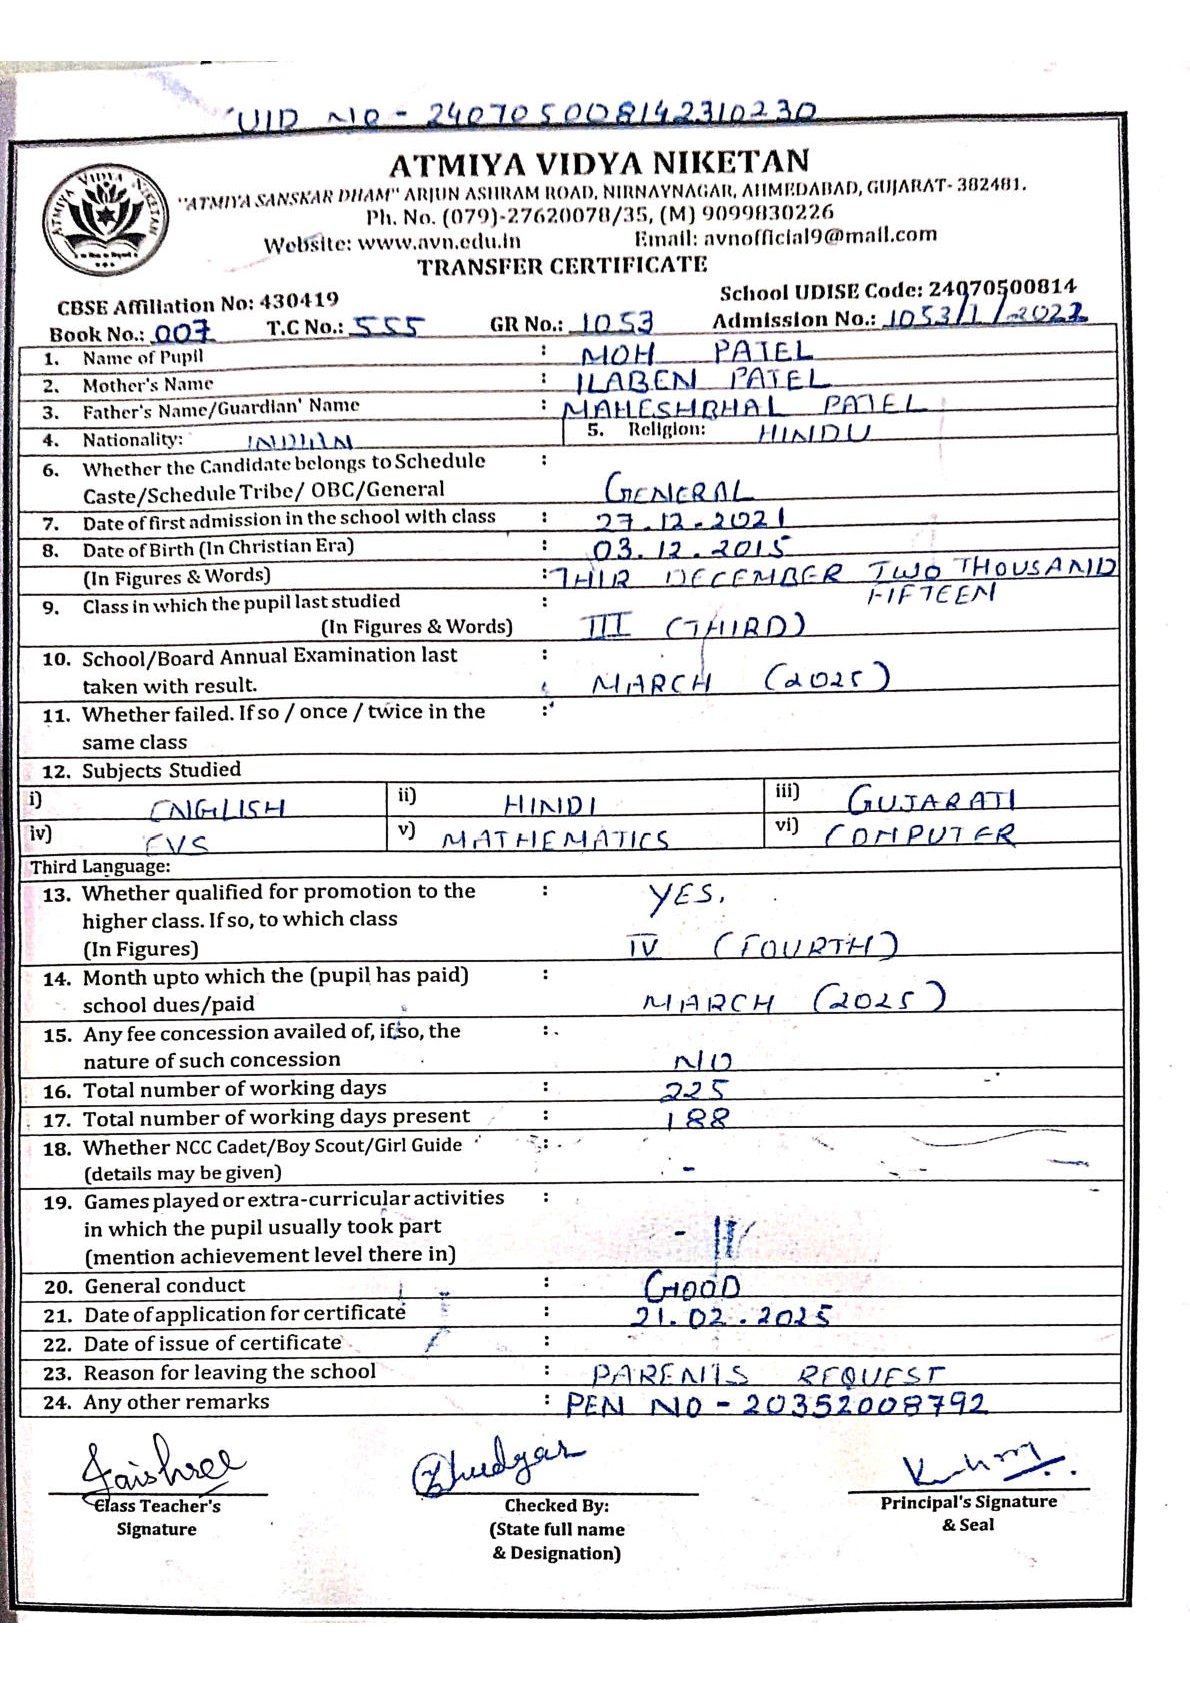 UID NO - 240705008142310230
ATMIYA VIDYA NIKETAN
"ATMIYA SANSKAR DHAM" ARJUN ASHRAM ROAD, NIRNAYNAGAR, AHMEDABAD, GUJARAT- 382481.
Ph. No. (079)-27620078/35, (M) 9099830226
Website: www.avn.edu.in Email: avnofficial9@mail.com
TRANSFER CERTIFICATE
CBSE Affiliation No: 430419 School UDISE Code: 24070500814
Book No.: 007 T.C No.: 555 GR No.: 1053 Admission No.: 1053/1/2022
1. Name of Pupil : MOH PATEL
2. Mother's Name : ILABEN PATEL
3. Father's Name/Guardian' Name : MAHESHBHAI PATEL
4. Nationality: INDIAN 5. Religion: HINDU
6. Whether the Candidate belongs to Schedule :
Caste/Schedule Tribe/ OBC/General GENERAL
7. Date of first admission in the school with class : 27.12.2021
8. Date of Birth (In Christian Era) : 03.12.2015
(In Figures & Words) : THIR DECEMBER TWO THOUSAND
FIFTEEN
9. Class in which the pupil last studied :
(In Figures & Words) III (THIRD)
10. School/Board Annual Examination last :
taken with result. MARCH (2025)
11. Whether failed. If so / once / twice in the :
same class
12. Subjects Studied
i) ENGLISH ii) HINDI iii) GUJARATI
iv) EVS v) MATHEMATICS vi) COMPUTER
Third Language:
13. Whether qualified for promotion to the : YES.
higher class. If so, to which class
(In Figures) IV (FOURTH)
14. Month upto which the (pupil has paid) :
school dues/paid MARCH (2025)
15. Any fee concession availed of, if so, the :
nature of such concession NO
16. Total number of working days : 225
17. Total number of working days present : 188
18. Whether NCC Cadet/Boy Scout/Girl Guide :
(details may be given) -
19. Games played or extra-curricular activities :
in which the pupil usually took part -
(mention achievement level there in)
20. General conduct : GOOD
21. Date of application for certificate : 21.02.2025
22. Date of issue of certificate :
23. Reason for leaving the school : PARENTS REQUEST
24. Any other remarks : PEN NO - 20352008792
Jaishree
Class Teacher's Checked By: Principal's Signature
Signature (State full name & Seal
& Designation)